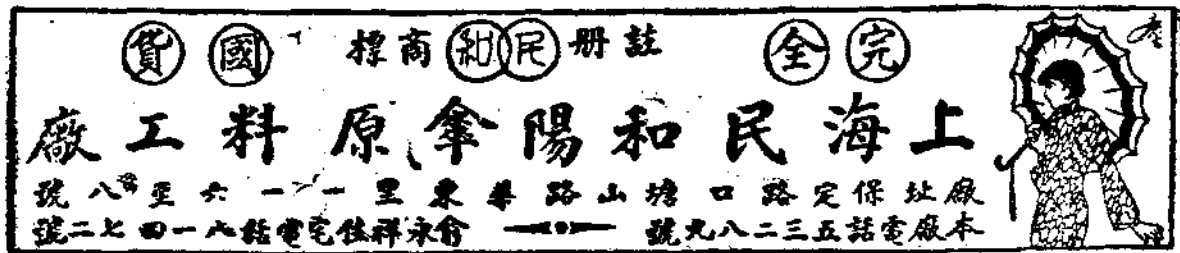 完全 註册民和商標 國貨
上海民和陽傘原料工廠
廠址保定路口塘山路華東里一一六至八號
本廠電話五三二八九號 俞永祥住宅電話六一四七二號